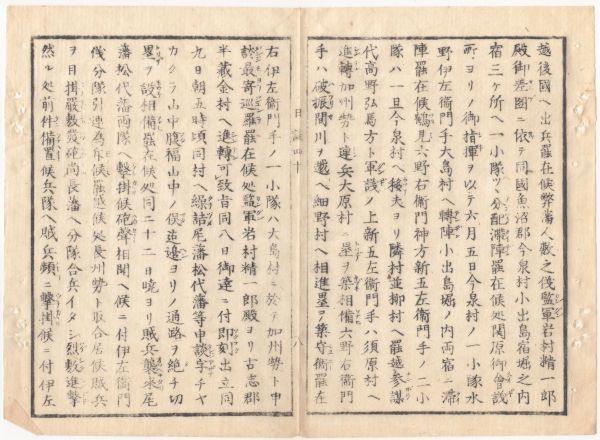 越後國ヘ出兵罷在候弊藩人数之俊監軍岩村精一郎
殿御差圖ニ依テ同國魚沼郡今泉村小出島宿堀之内
宿三ケ所ヘ一小隊ツヽ分配滞陣罷在候処関原御會議
町ヨリノ御指揮ヲ以テ六月五日今泉村ノ一小隊水
野伊左衛門手大島村ヘ轉陣小出島堀ノ内両宿ニ滞
陣罷在候鶴見六野右衛門神方新五左衛門手ノ二小
隊ハ一旦今泉村ヘ移夫ヨリ隣村並柳村ヘ罷越参謀
代高野弘馬方ト軍議ノ上新五左衛門手ハ須原村ヘ
進轉加州勢ト連兵大原村ニ塁ヲ築相備六野右衛門
手ハ破振関川ヲ越ヘ細野村ヘ相進塁ヲ築守衛罷在
日誌四十
八
右伊左衛門手ノ一小隊ハ大島村ニ於テ加州勢ト申
談最寄巡羅罷在候処監軍岩村精一郎殿ヨリ古志郡
半蔵金村ヘ進轉可致旨同八日御達ニ付即刻出立同
九日朝五時頃同村ヘ繰詰尾藩松代藩等申談字チヤ
カクラ山中腹福山中ノ俣道邊ヨリノ通路ヲ絶チ切
塁ヲ設相備罷在候処同二十二日暁ヨリ賊兵襲来尾
藩松代藩両隊ヘ撃掛候砲聲相聞ヘ候ニ付伊左衛門
儀分隊引連為斥候罷越候処長州勢ト取合居候賊兵
ヲ目掛嚴敷發砲尚長藩ヘ分隊合兵イタシ烈敷進撃
然ル処前件備置候兵隊ヘ賊兵頻ニ撃掛候ニ付伊左